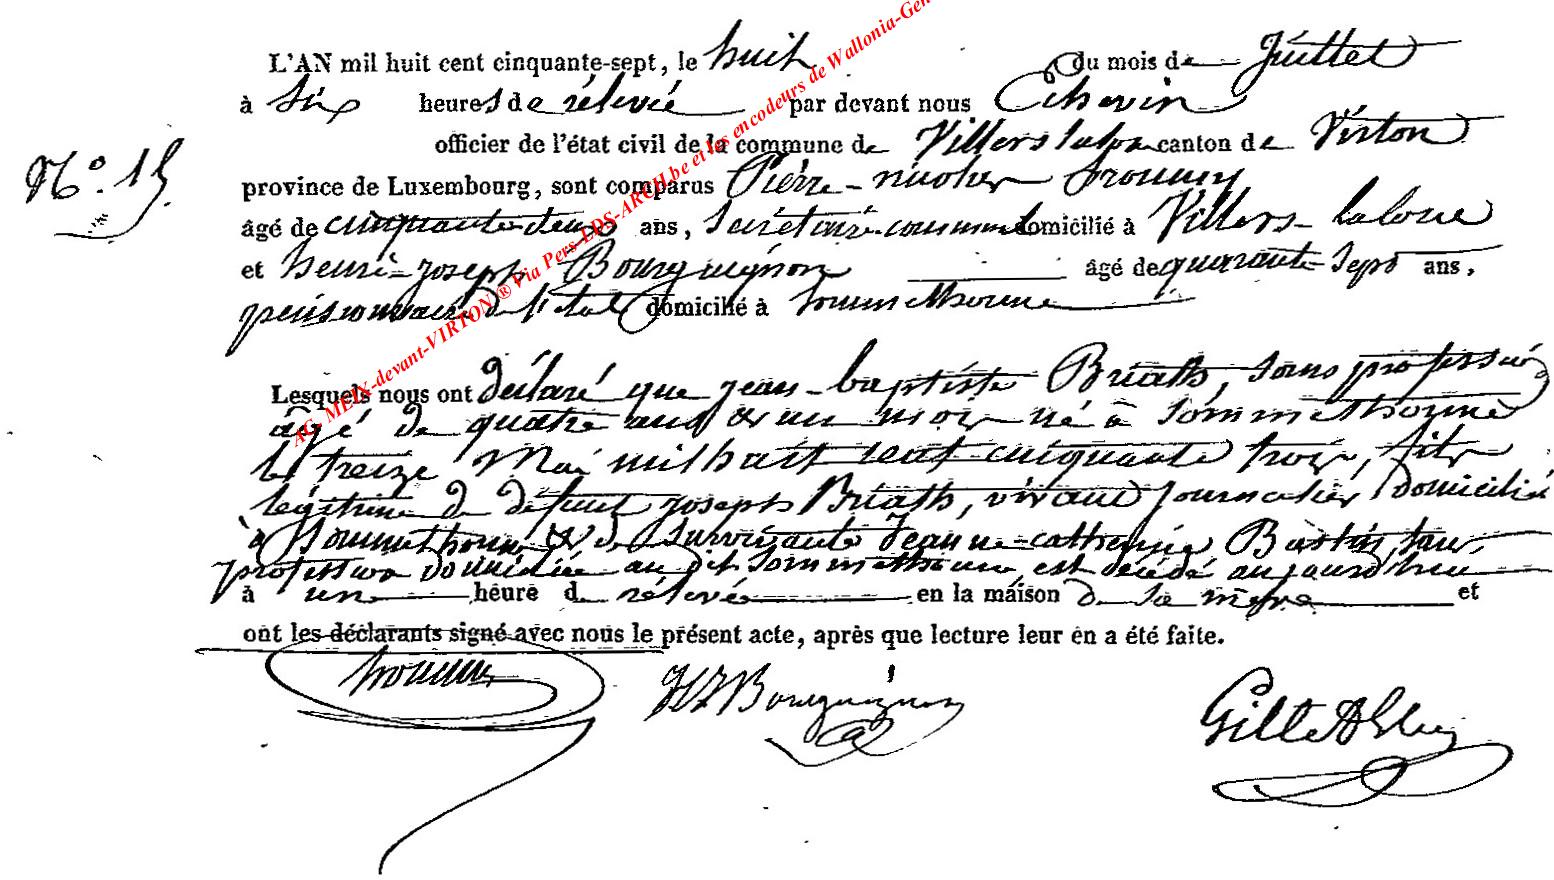 L'AN mil huit cent cinquante-sept, le huit du mois de Juillet
à Six heures de rélevée par devant nous Echevin
officier de l'état civil de la commune de Villers laloue canton de Virton
N°. 15
province de Luxembourg, sont comparus Pierre-nicolas
âgé de cinquante deux ans, Secrétaire communal domicilié à Villers-laloue
et henri-joseph Bourguignon âgé de quarante sept ans,
pensionnaire de l'état domicilié à Sommethonne
Lesquels nous ont déclaré que jean-baptiste Briath, sans profession,
âgé de quatre ans & un mois né à Sommethonne
le treize Mai mil huit cent cinquante trois, fils
légitime de défunt joseph Briath, vivant journalier domicilié
à Sommethonne & de survivante Jeanne-catherine Bastin, sans
profession domiciliée au dit Sommethonne est décédé aujourd'hui
à une heure de rélevée en la maison de sa mère et
ont les déclarants signé avec nous le présent acte, après que lecture leur en a été faite.
HJ Bourguignon
AC_MEIX-devant-VIRTON ® Via Pers-LDS-ARCH.be et les encodeurs de Wallonia-Gen